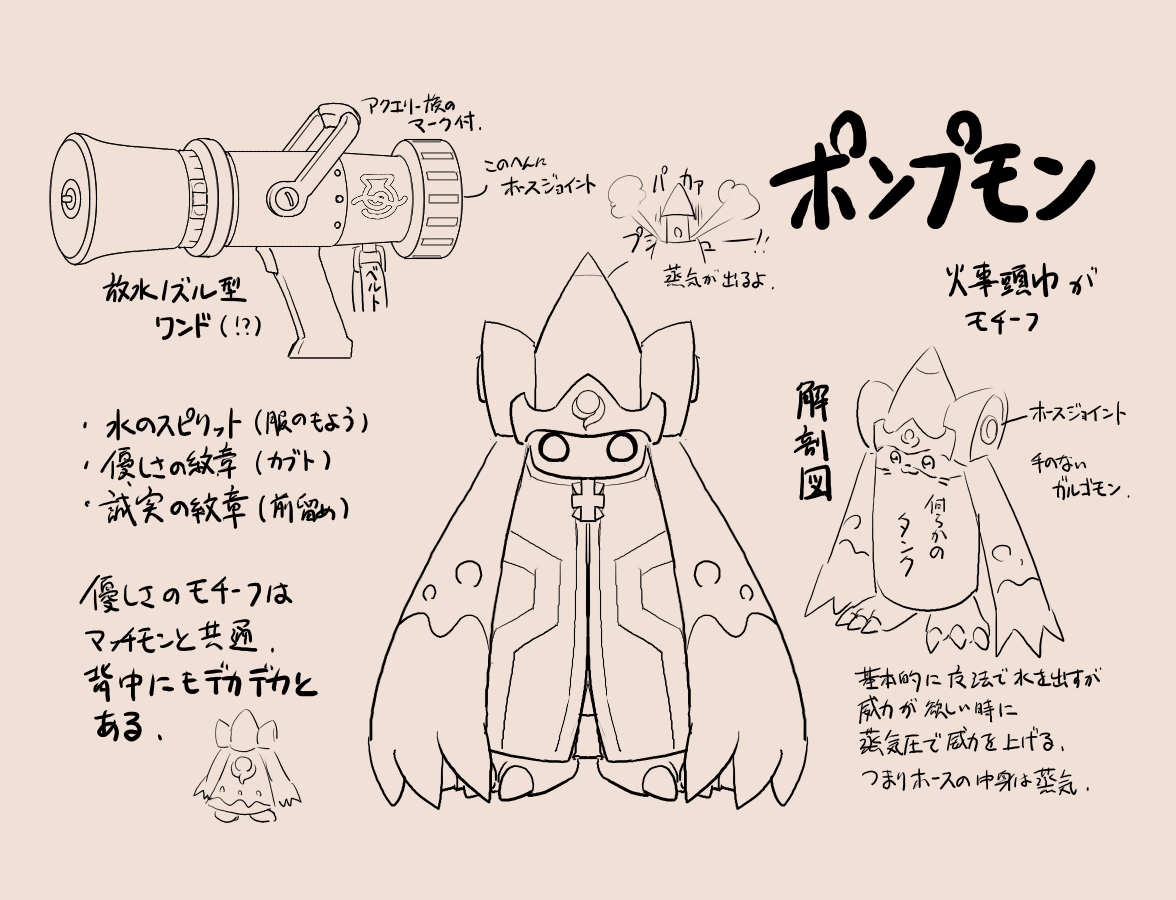 ポンプモン
アクエリー族の
マーク付.
このへんに
ホースジョイント
パカァ
プシュー!!
蒸気が出るよ.
ベルト
放水ノズル型
ワンド(!?)
火事頭巾が
モチーフ
・水のスピリット(服のもよう)
・優しさの紋章(カブト)
・誠実の紋章(前留め)
解剖図
ホースジョイント
手のない
ガルゴモン.
何らかの
タンク
優しさのモチーフは
マッチモンと共通.
背中にもデカデカと
ある.
基本的に技法で水を出すが
威力が欲しい時に
蒸気圧で威力を上げる.
つまりホースの中身は蒸気.